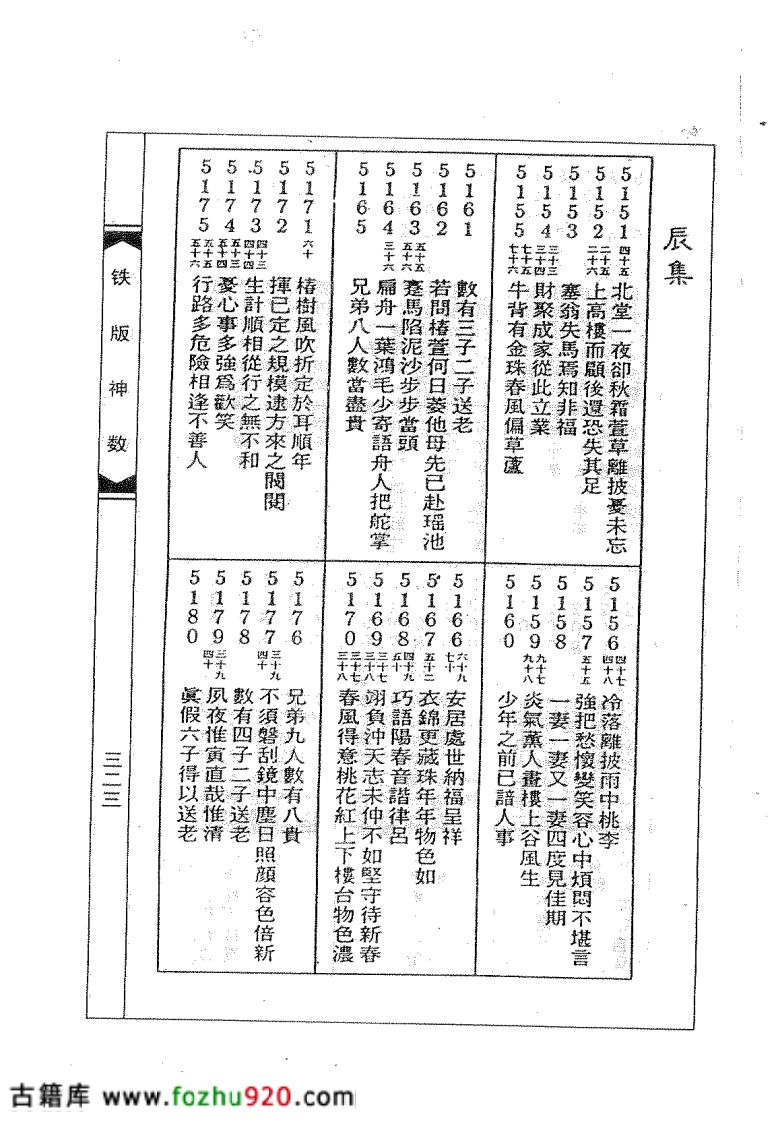 辰集
5151 四十五 北堂一夜卻秋霜萱草離披憂未忘
5152 二十五 二十六 上高樓而顧後還恐失其足
5153 塞翁失馬焉知非福
5154 三十三 三十四 財聚成家從此立業
5155 七十五 七十六 牛背有金珠春風偏草蘆
5156 四十七 四十八 冷落離披雨中桃李
5157 五十五 強把愁懷變笑容心中煩悶不堪言
5158 一妻一妻又一妻四度見佳期
5159 九十七 九十八 炎氣薰人畫樓上谷風生
5160 少年之前已諳人事
5161 數有三子二子送老
5162 若問椿萱何日萎他母先已赴瑶池
5163 五十五 五十六 蹇馬陷泥沙步步當頭
5164 三十六 扁舟一葉鴻毛少寄語舟人把舵掌
5165 兄弟八人數當盡貴
5166 六十九 七十 安居處世納福呈祥
5167 五十二 衣錦更藏珠年年物色如
5168 四十九 五十 巧語陽春音諧律呂
5169 三十七 三十八 翊負沖天志未仲不如堅守待新春
5170 三十七 三十八 春風得意桃花紅上下樓台物色濃
5171 六十 椿樹風吹折定於耳順年
5172 揮已定之規模逮方來之閥閱
5173 四十三 四十四 生計順相從行之無不和
5174 五十三 五十四 憂心事多強爲歡笑
5175 五十五 五十六 行路多危險相逢不善人
5176 兄弟九人數有八貴
5177 三十九 四十 不須磐刮鏡中塵日照顔容色倍新
5178 數有四子二子送老
5179 三十九 四十 夙夜惟寅直哉惟清
5180 眞假六子得以送老
铁版神数
三二三
古籍库 www.fozhu920.com